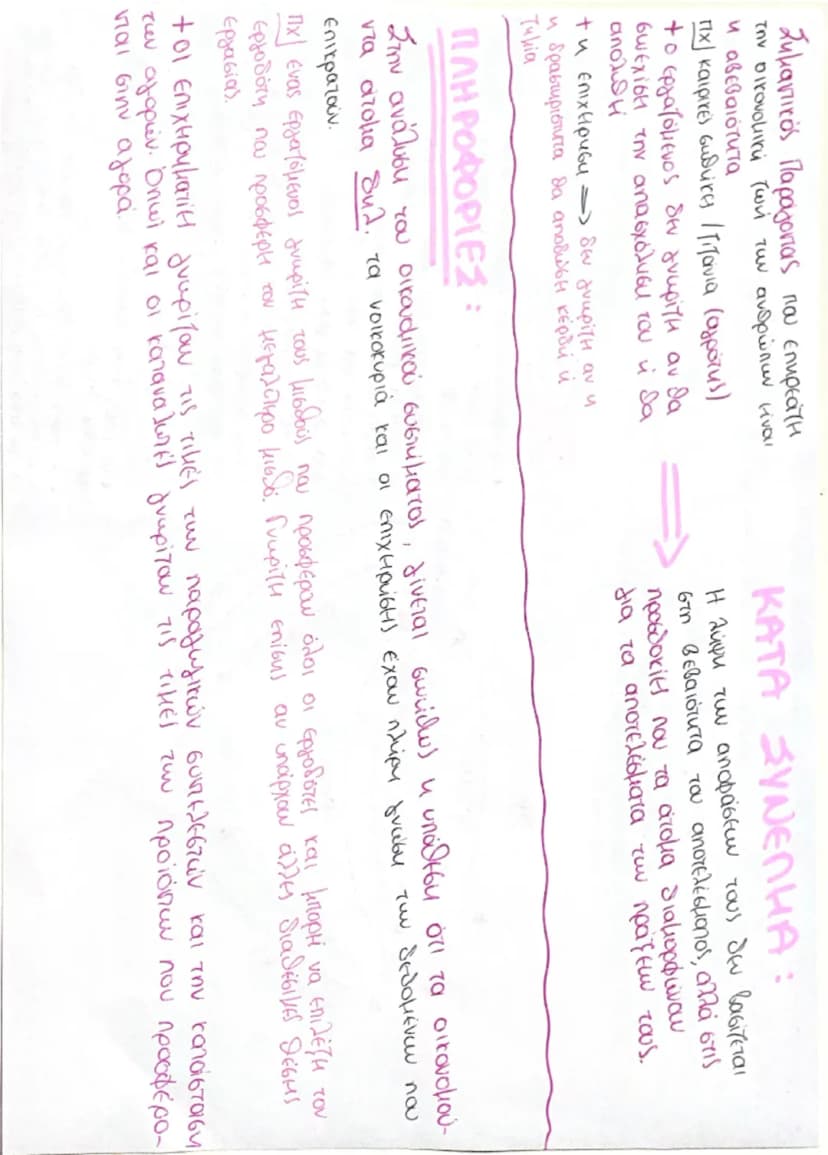 Σημαντικός Παράγοντας που επηρεάζει
την οικονομική ζωή των ανθρώπων είναι
η αβεβαιότητα
πχ καιρικές συνθήκες / Ζιζάνια (αγρότης)
+ ο εργαζόμενος δεν γνωρίζει αν θα
συνεχίσει την απασχόληση του ή θα
απολυθεί
+ η επιχείρηση => δεν γνωρίζει αν η
η δραστηριότητα θα αποδώσει κέρδη ή
ζημία
ΚΑΤΑ ΣΥΝΕΠΕΙΑ:
Η λήψη των αποφάσεων τους δεν βασίζεται
στη βεβαιότητα του αποτελέσματος, αλλά στις
προσδοκίες που τα άτομα διαμορφώνουν
για τα αποτελέσματα των πράξεων τους.
ΠΛΗΡΟΦΟΡΙΕΣ:
Στην ανάλυση του οικονομικού συστήματος, γίνεται συνήθως η υπόθεση ότι τα οικονομού-
ντα άτομα δηλ. τα νοικοκυριά και οι επιχειρήσεις έχουν πλήρη γνώση των δεδομένων που
επικρατούν.
πχ ένας εργαζόμενος γνωρίζει τους μισθούς που προσφέρουν όλοι οι εργοδότες και μπορεί να επιλέξει τον
εργοδότη που προσφέρει τον μεγαλύτερο μισθό. Γνωρίζει επίσης αν υπάρχουν άλλες διαθέσιμες θέσεις
εργασίας.
+ οι επιχειρηματίες γνωρίζουν τις τιμές των παραγωγικών συντελεστών και την κατάσταση
των αγορών. Όπως και οι καταναλωτές γνωρίζουν τις τιμές των προϊόντων που προσφέρο-
νται στην αγορά.